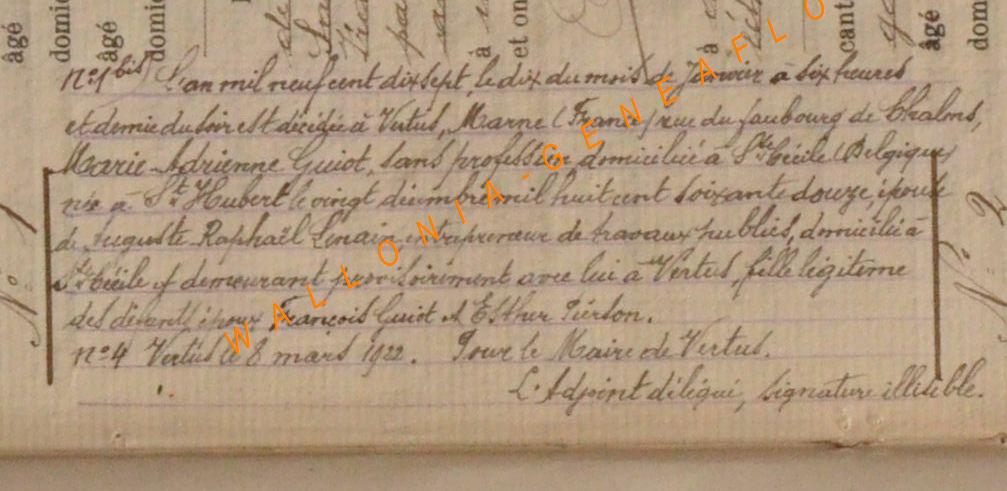 âgé
domic
âgé
domic
à
et on
à
cant
âgé
dom
N° 1
N° 2
n°1 bis) L'an mil neuf cent dix sept, le dix du mois de Janvier à six heures
et demie du soir est décédée à Vertus, Marne (France) rue du faubourg de Chalons,
Marie-Adrienne Guiot, sans profession domiciliée à Ste Cécile (Belgique)
née à St Hubert le vingt décembre mil huit cent soixante douze, épouse
de Auguste Raphaël Lenain entrepreneur de travaux publics, domicilié à
Ste Cécile et demeurant provisoirement avec lui à Vertus, fille légitime
des défunts époux François Guiot et Esther Pierson.
n°4 Vertus le 8 mars 1922. Pour le Maire de Vertus.
L'Adjoint délégué, signature illisible.
WALLONIA-GENEAFLO